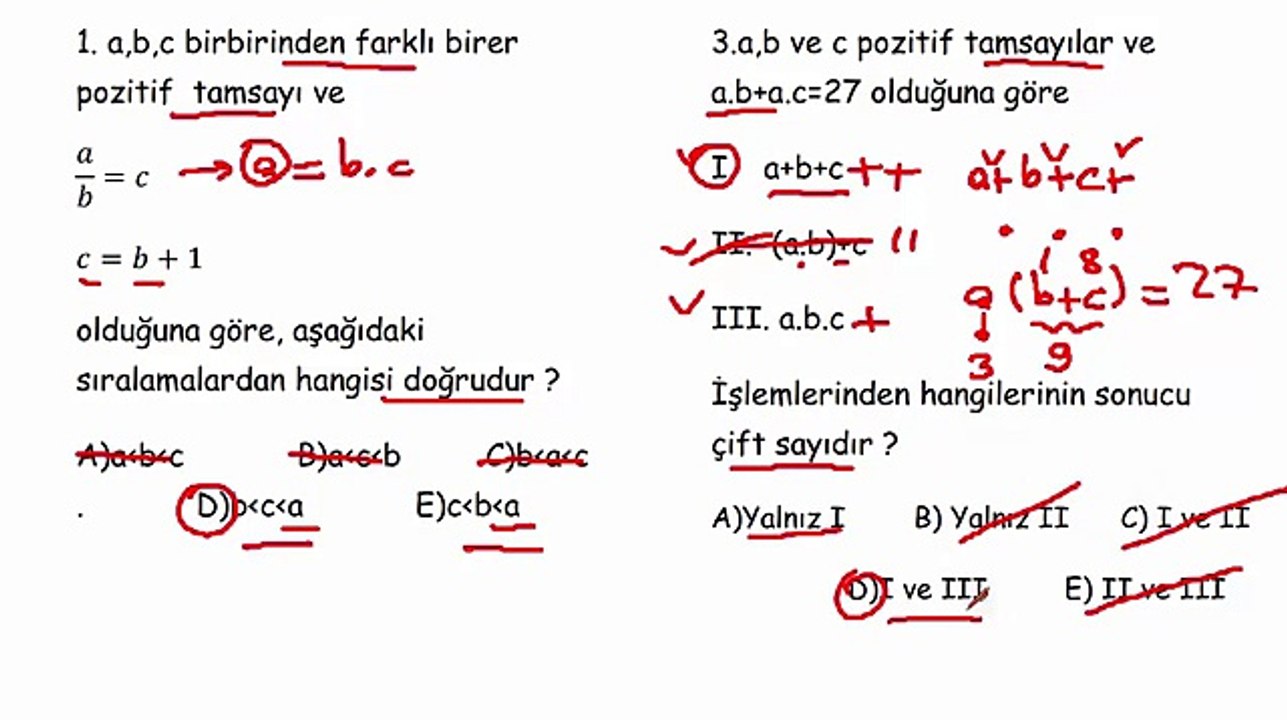 1. a,b,c birbirinden farklı birer
pozitif tamsayı ve
a/b = c → a = b.c
c = b + 1
olduğuna göre, aşağıdaki
sıralamalardan hangisi doğrudur ?
A)a<b<c B)a<c<b C)b<a<c
. D)b<c<a E)c<b<a
3.a,b ve c pozitif tamsayılar ve
a.b+a.c=27 olduğuna göre
I a+b+c ++ a+b+c+
II. (a.b)+c
III. a.b.c +
8
a(b+c) = 27
3 9
İşlemlerinden hangilerinin sonucu
çift sayıdır ?
A)Yalnız I B) Yalnız II C) I ve II
D)I ve III E) II ve III